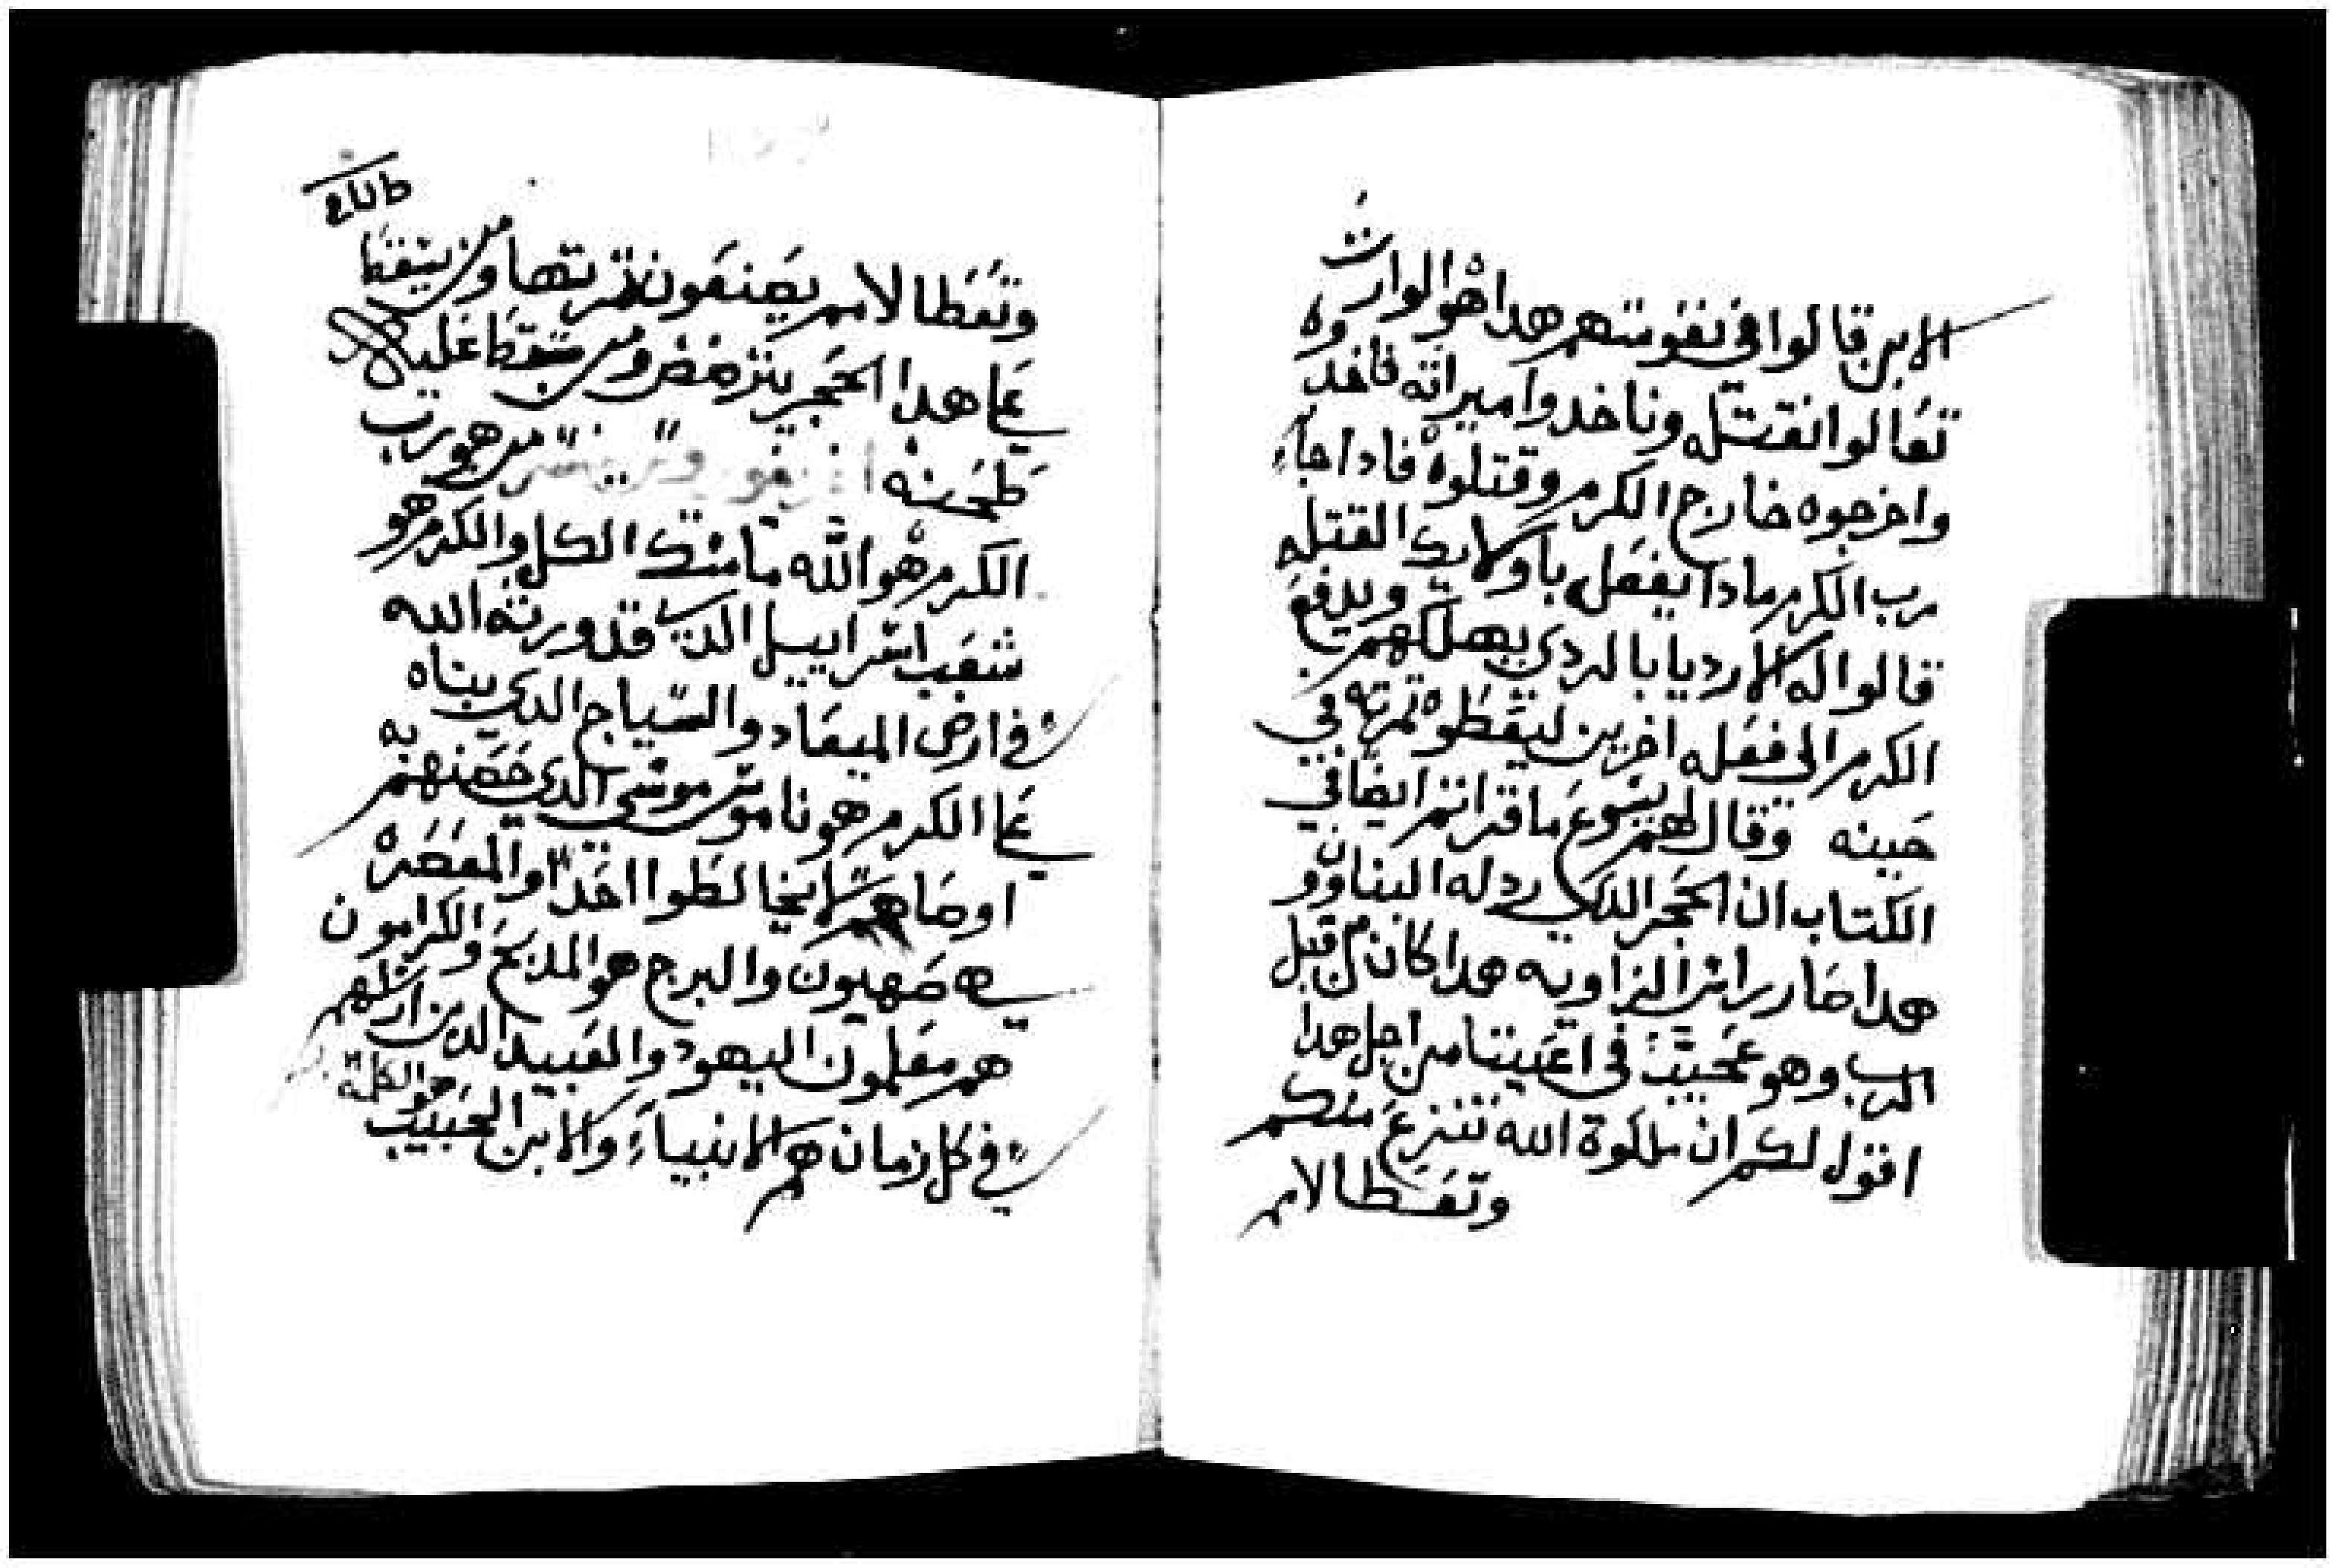 الابن قالوا في نفوسهم هدا هو الوارث
تعالوا نقتله وناخدوا ميراته فاخدوه
واخرجوه خارج الكرم وقتلوه فادا جاء
رب الكرم مادا يفعل باولايك القتله
قالوا له الارديا بالردي يهلكهم ويدفع
الكرم الى فعله اخرين ليعطوه تمرته في
حينه وقال لهم يسوع ما قراتم ايضا في
الكتاب ان الحجر الدي ردله البناوون
هدا صار راس الزاويه هدا كان من قبل
الرب وهو عجيب في اعيننا من اجل هدا
اقول لكم ان ملكوة الله تنزع منكم
وتعطا لامم
وتعطا لامم يصنعون تمرتها ومن يسقط
على هدا الحجر يترضض ومن سقط عليه
طحنه من هو رب
الكرم هو الله ماسك الكل والكرم هو
شعب اسراييل الدي قد ورته الله
في ارض الميعاد والسياج الدي بناه
على الكرم هو ناموس موسى الدي حصنهم به
اوصاهم لا يخالطوا احدا والمعصره
هي صهيون والبرج هو المدبح والكرامون
هم معلمون اليهود والعبيد الدين ارسلهم
في كل زمان هم الانبياء والابن الحبيب هو الكلمة